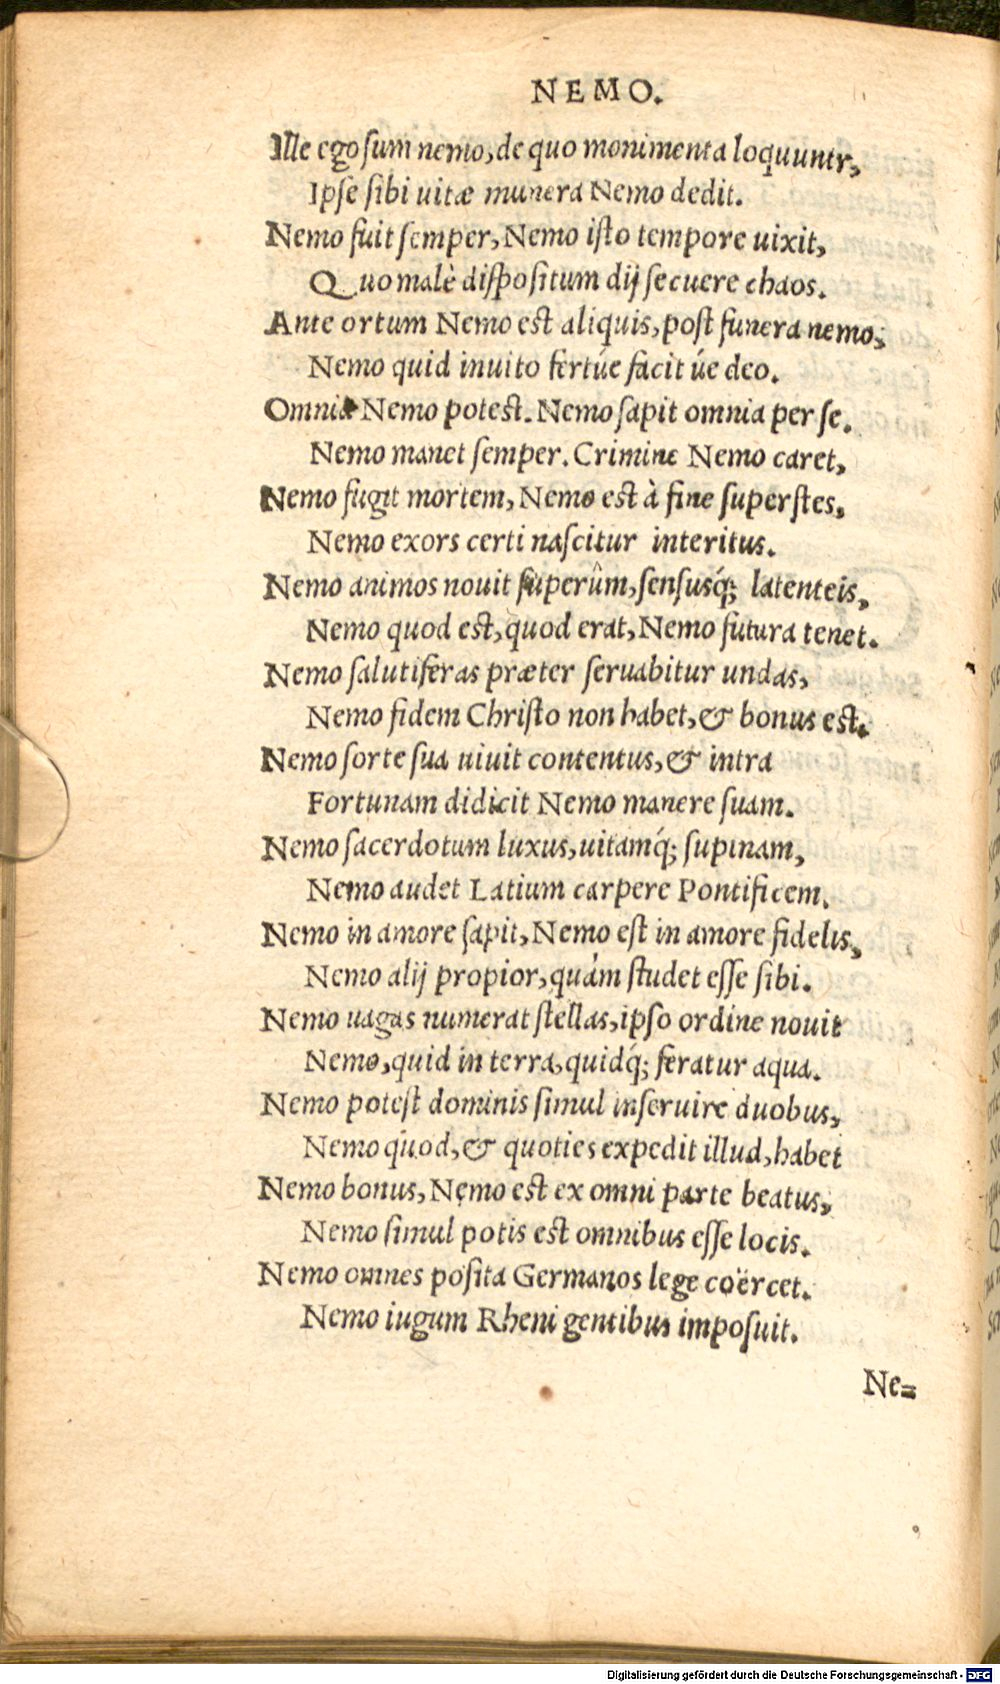 NEMO.
Ille ego sum nemo, de quo monimenta loquuntr,
Ipse sibi uitæ munera Nemo dedit.
Nemo fuit semper, Nemo isto tempore uixit,
Quo malè dispositum dij secuere chaos.
Ante ortum Nemo est aliquis, post funera nemo,
Nemo quid inuito fertúe facit úe deo.
Omnia Nemo potest. Nemo sapit omnia per se.
Nemo manet semper. Crimine Nemo caret,
Nemo fugit mortem, Nemo est à fine superstes,
Nemo exors certi nascitur interitus.
Nemo animos nouit superûm, sensusq́; latenteis,
Nemo quod est, quod erat, Nemo futura tenet.
Nemo salutiferas præter seruabitur undas,
Nemo fidem Christo non habet, & bonus est.
Nemo sorte sua uiuit contentus, & intra
Fortunam didicit Nemo manere suam.
Nemo sacerdotum luxus, uitamq́; supinam,
Nemo audet Latium carpere Pontificem.
Nemo in amore sapit, Nemo est in amore fidelis,
Nemo alij propior, quám studet esse sibi.
Nemo uagas numerat stellas, ipso ordine nouit
Nemo, quid in terra, quidq́; feratur aqua.
Nemo potest dominis simul inseruire duobus,
Nemo quod, & quoties expedit illud, habet
Nemo bonus, Nemo est ex omni parte beatus,
Nemo simul potis est omnibus esse locis.
Nemo omnes posita Germanos lege coërcet.
Nemo iugum Rheni gentibus imposuit.
Ne=
Digitalisierung gefördert durch die Deutsche Forschungsgemeinschaft - DFG